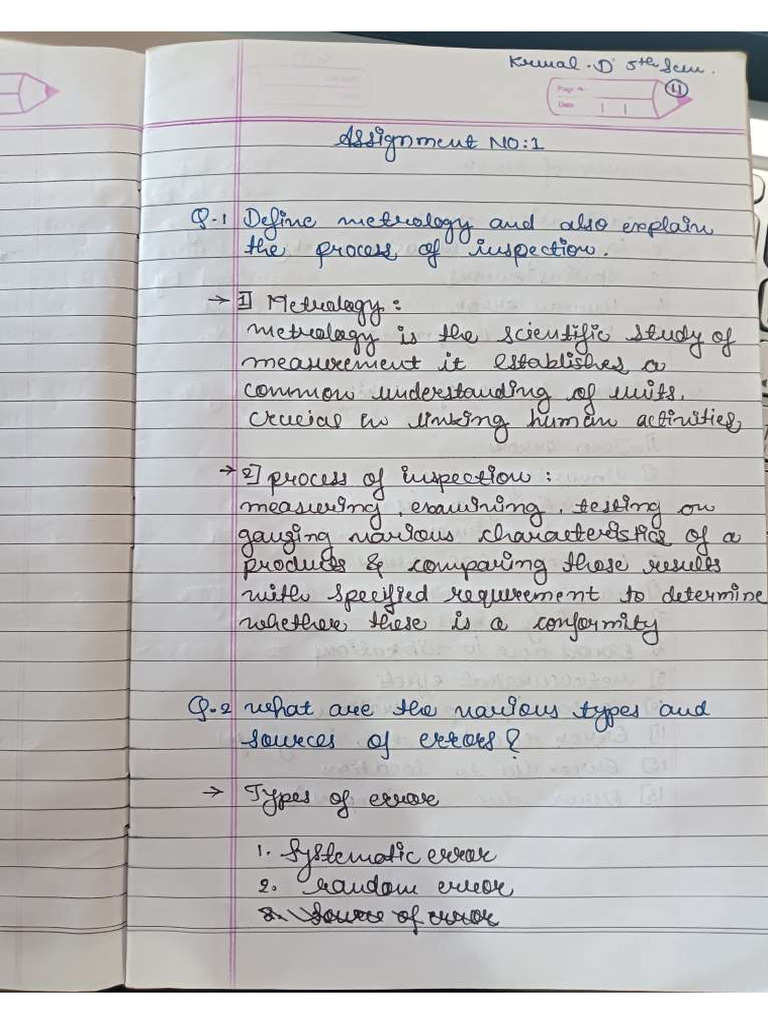 Krunal . D 5th Sem .
Page No
Date
11
Assignment NO:1
Q.1 Define metrology and also explain
the process of inspection.
→ 1] Metrology :
metrology is the scientific study of
measurement it establishes a
common understanding of units,
crucial in linking human activities,
→ 2] process of inspection :
measuring, examining, testing or
gauging various characteristics of a
products & comparing those results
with specified requirement to determine
whether these is a conformity
Q.2 what are the various types and
sources of errors?
→ Types of error
1. Systematic error
2. random error
3. Source of error